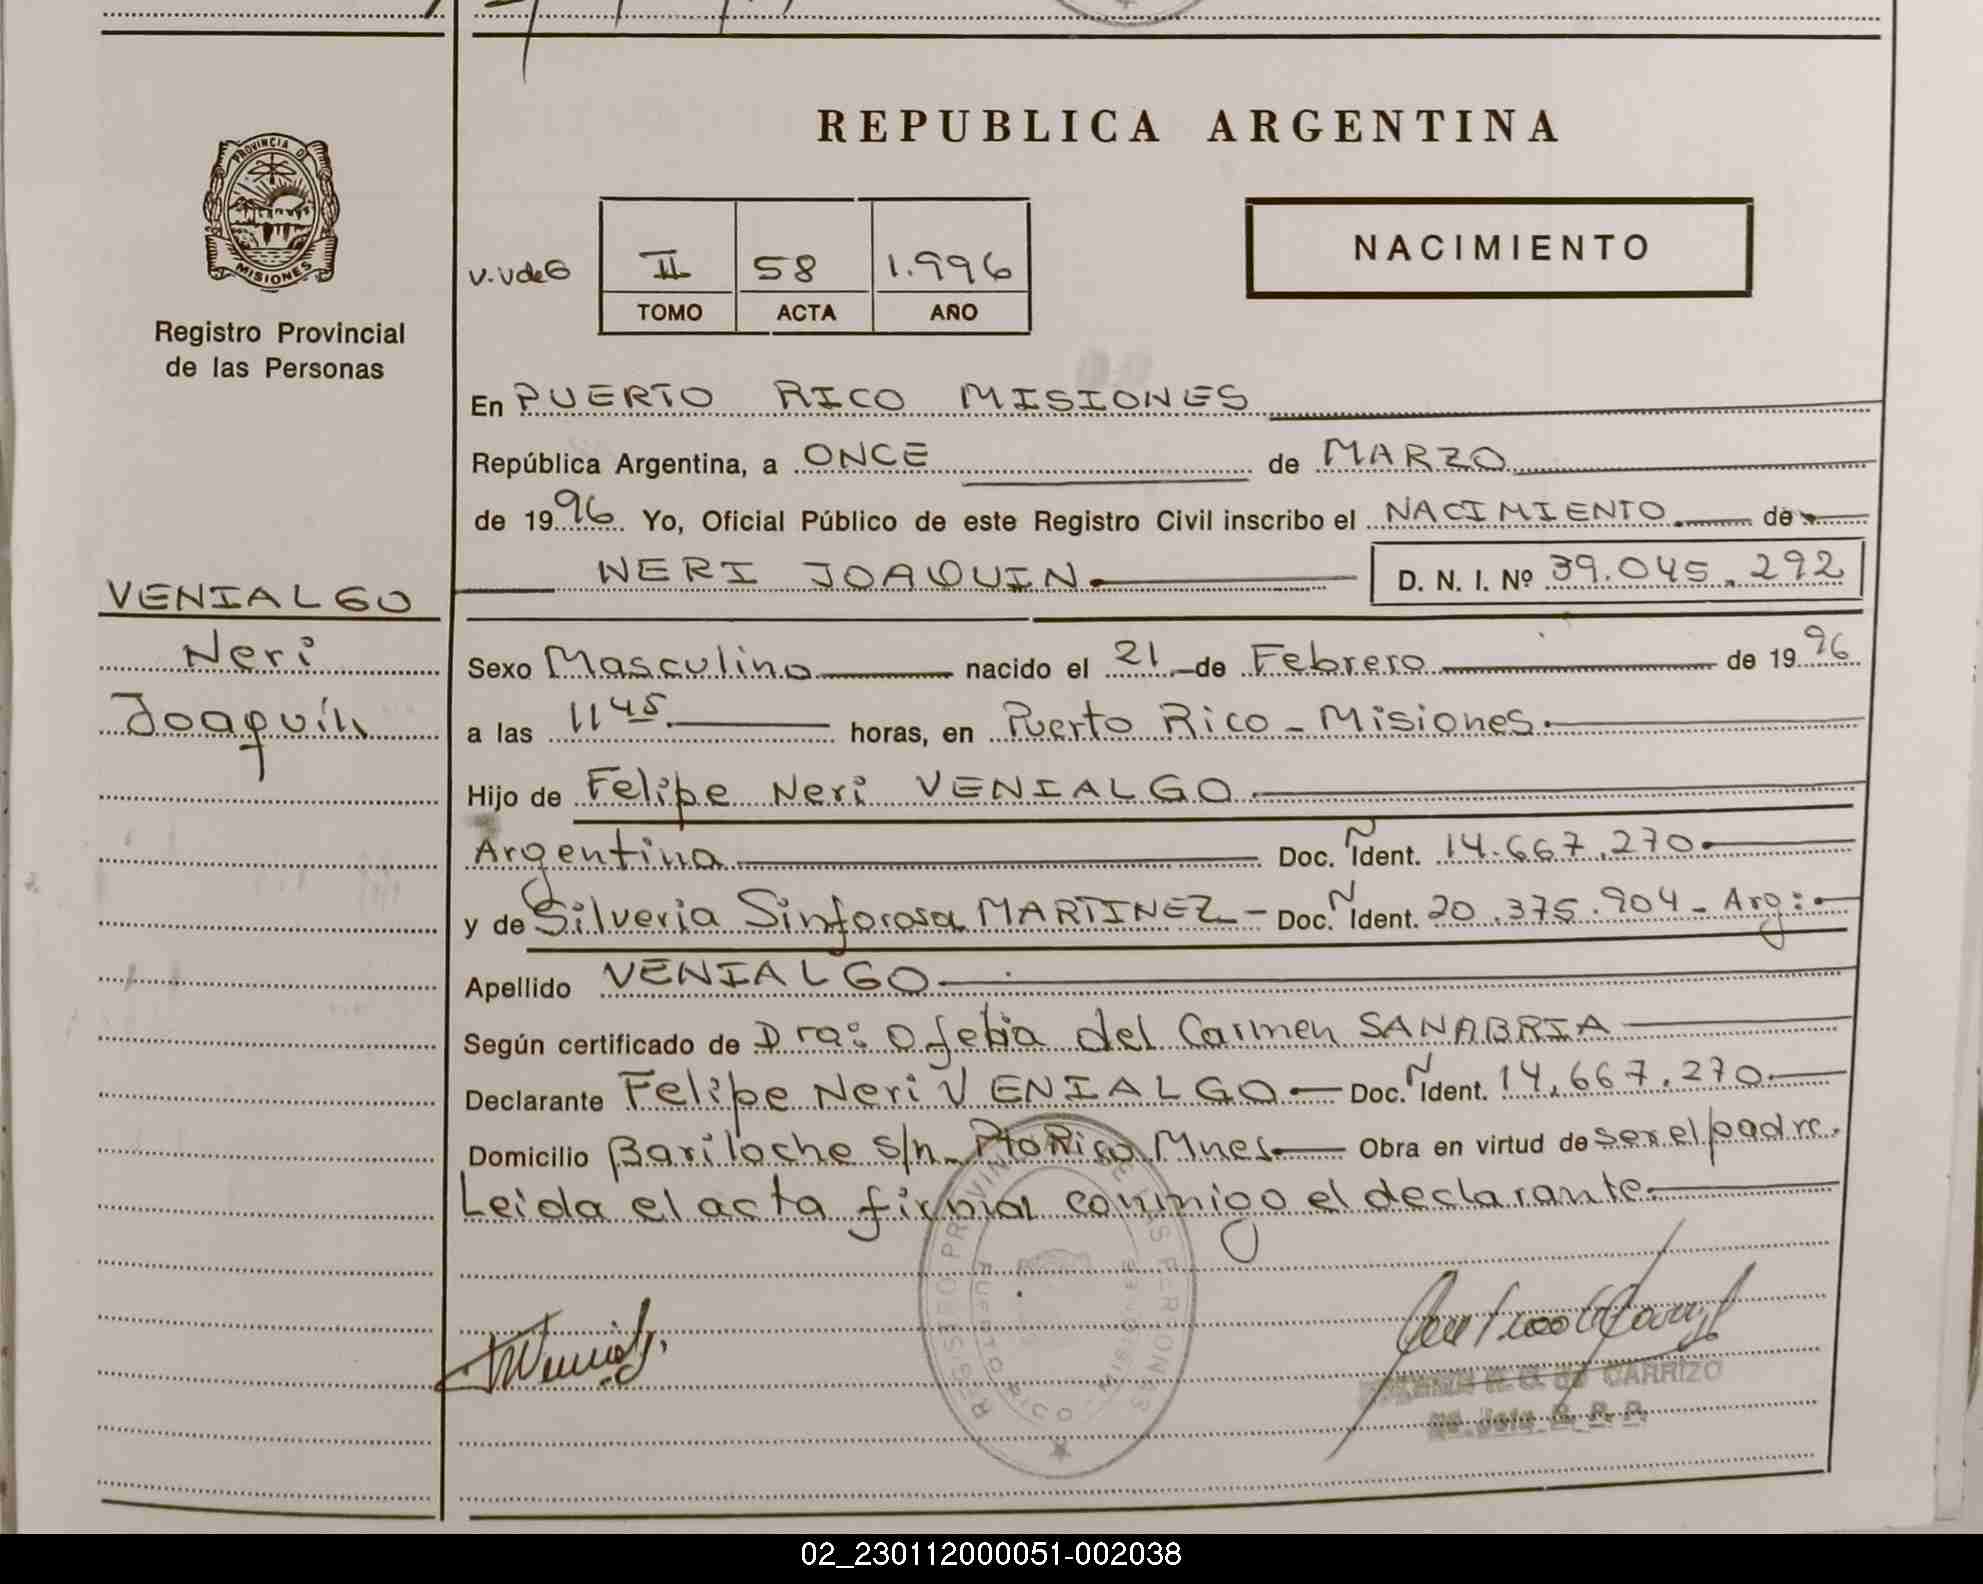 REPUBLICA ARGENTINA
PROVINCIA D
MISIONES
Registro Provincial
de las Personas
NACIMIENTO
V.VdeG
II 58 1.996
TOMO ACTA AÑO
En PUERTO RICO MISIONES
República Argentina, a ONCE de MARZO
de 1996 Yo, Oficial Público de este Registro Civil inscribo el NACIMIENTO de
NERI JOAQUIN
D. N. I. Nº 39.045.292
VENIALGO
Neri
Joaquín
Sexo Masculino nacido el 21 de Febrero de 1996
a las 11 45 horas, en Puerto Rico - Misiones.
Hijo de Felipe Neri VENIALGO
Argentina Doc. Ñ Ident. 14.667.270
y de Silveria Sinforosa MARTINEZ - Doc. Ñ Ident. 20.375.904 - Arg:
Apellido VENIALGO
Según certificado de Dra: Ofelia del Carmen SANABRIA
Declarante Felipe Neri VENIALGO - Doc. Ñ Ident. 14.667.270
Domicilio Bariloche s/n - Pto Rico Mnes - Obra en virtud de ser el padre.
Leida el acta firma conmigo el declarante.
REGISTRO PROVIN DE LAS PERSONAS
PUERTO RICO - MISIONES
de CARRIZO
02_230112000051-002038